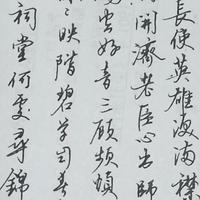 長使英雄淚滿襟
開濟老臣心出師
空好音三顧頻煩
映階碧草自春
祠堂何處尋錦